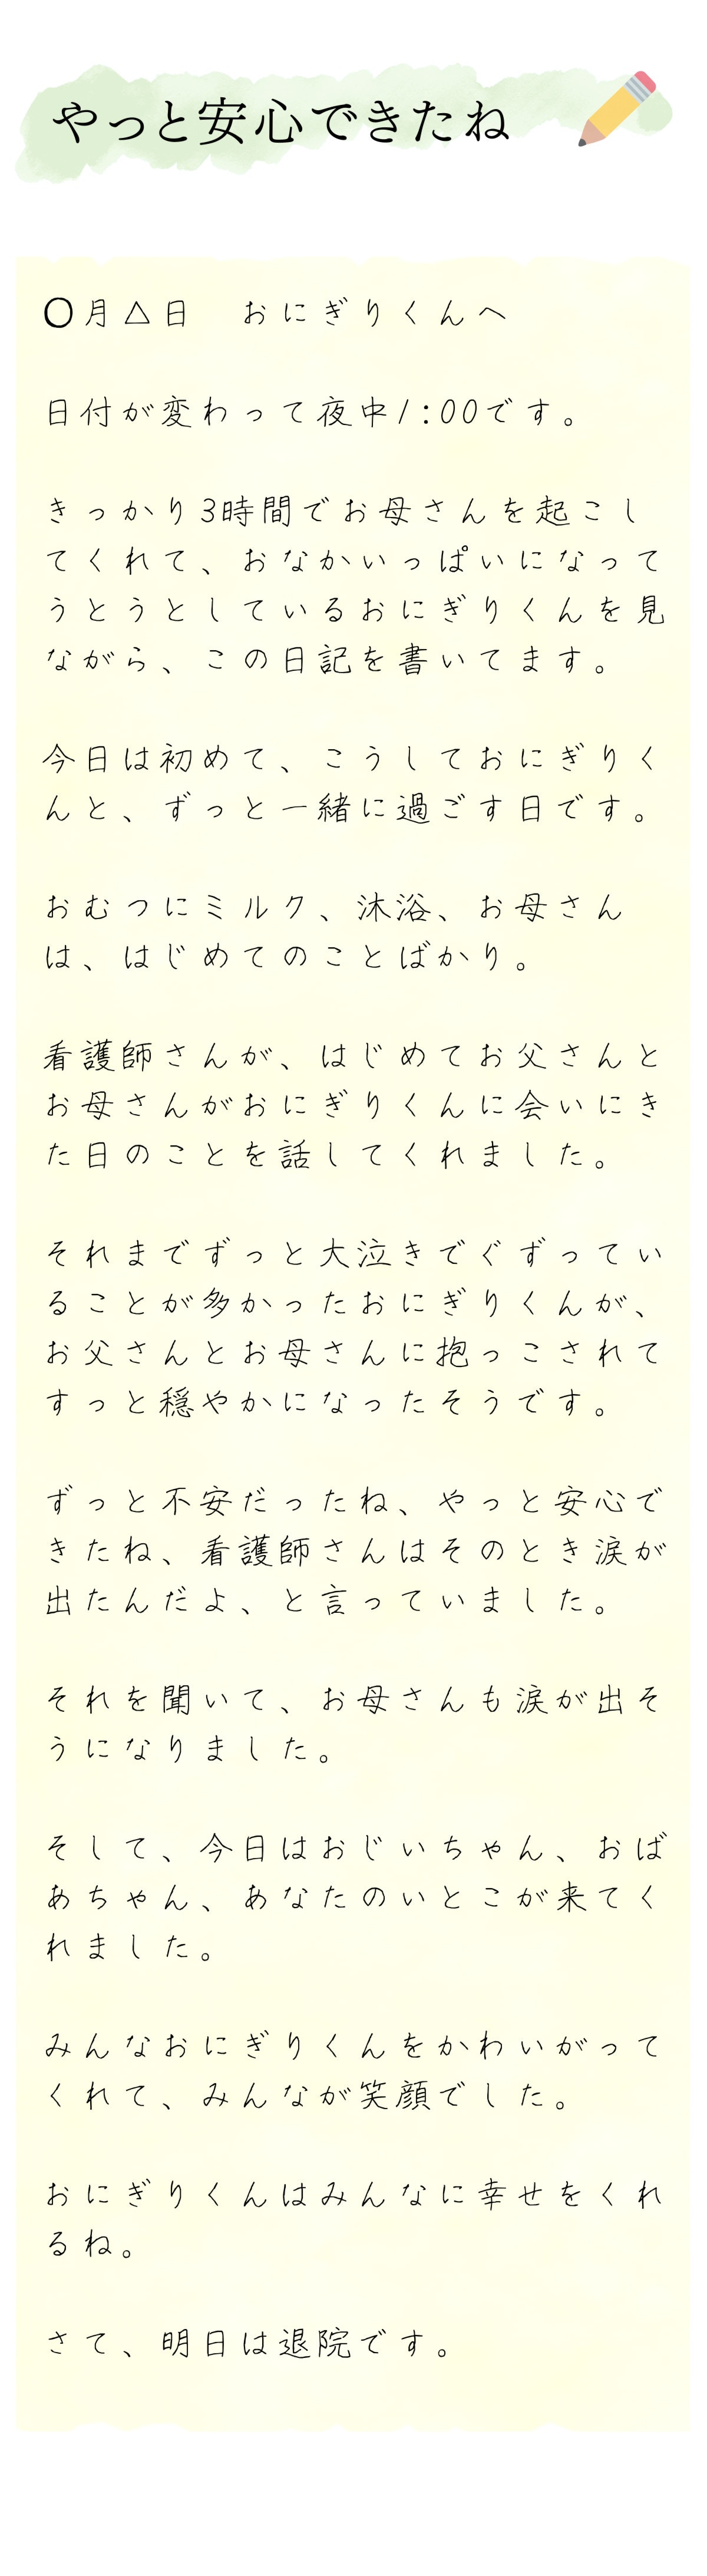 やっと安心できたね
〇月△日　おにぎりくんへ
日付が変わって夜中1:00です。
きっかり3時間でお母さんを起こし
てくれて、おなかいっぱいになって
うとうとしているおにぎりくんを見
ながら、この日記を書いてます。
今日は初めて、こうしておにぎりく
んと、ずっと一緒に過ごす日です。
おむつにミルク、沐浴、お母さん
は、はじめてのことばかり。
看護師さんが、はじめてお父さんと
お母さんがおにぎりくんに会いにき
た日のことを話してくれました。
それまでずっと大泣きでぐずってい
ることが多かったおにぎりくんが、
お父さんとお母さんに抱っこされて
すっと穏やかになったそうです。
ずっと不安だったね、やっと安心で
きたね、看護師さんはそのとき涙が
出たんだよ、と言っていました。
それを聞いて、お母さんも涙が出そ
うになりました。
そして、今日はおじいちゃん、おば
あちゃん、あなたのいとこが来てく
れました。
みんなおにぎりくんをかわいがって
くれて、みんなが笑顔でした。
おにぎりくんはみんなに幸せをくれ
るね。
さて、明日は退院です。